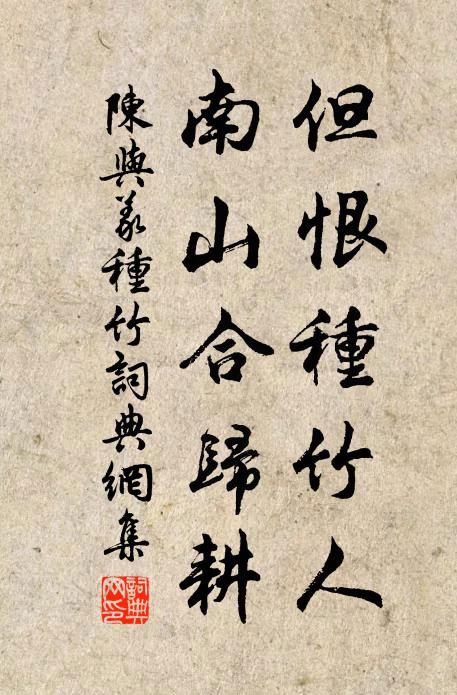 但恨種竹人
南山合歸耕
陳與義種竹詞典網集
詞典網印